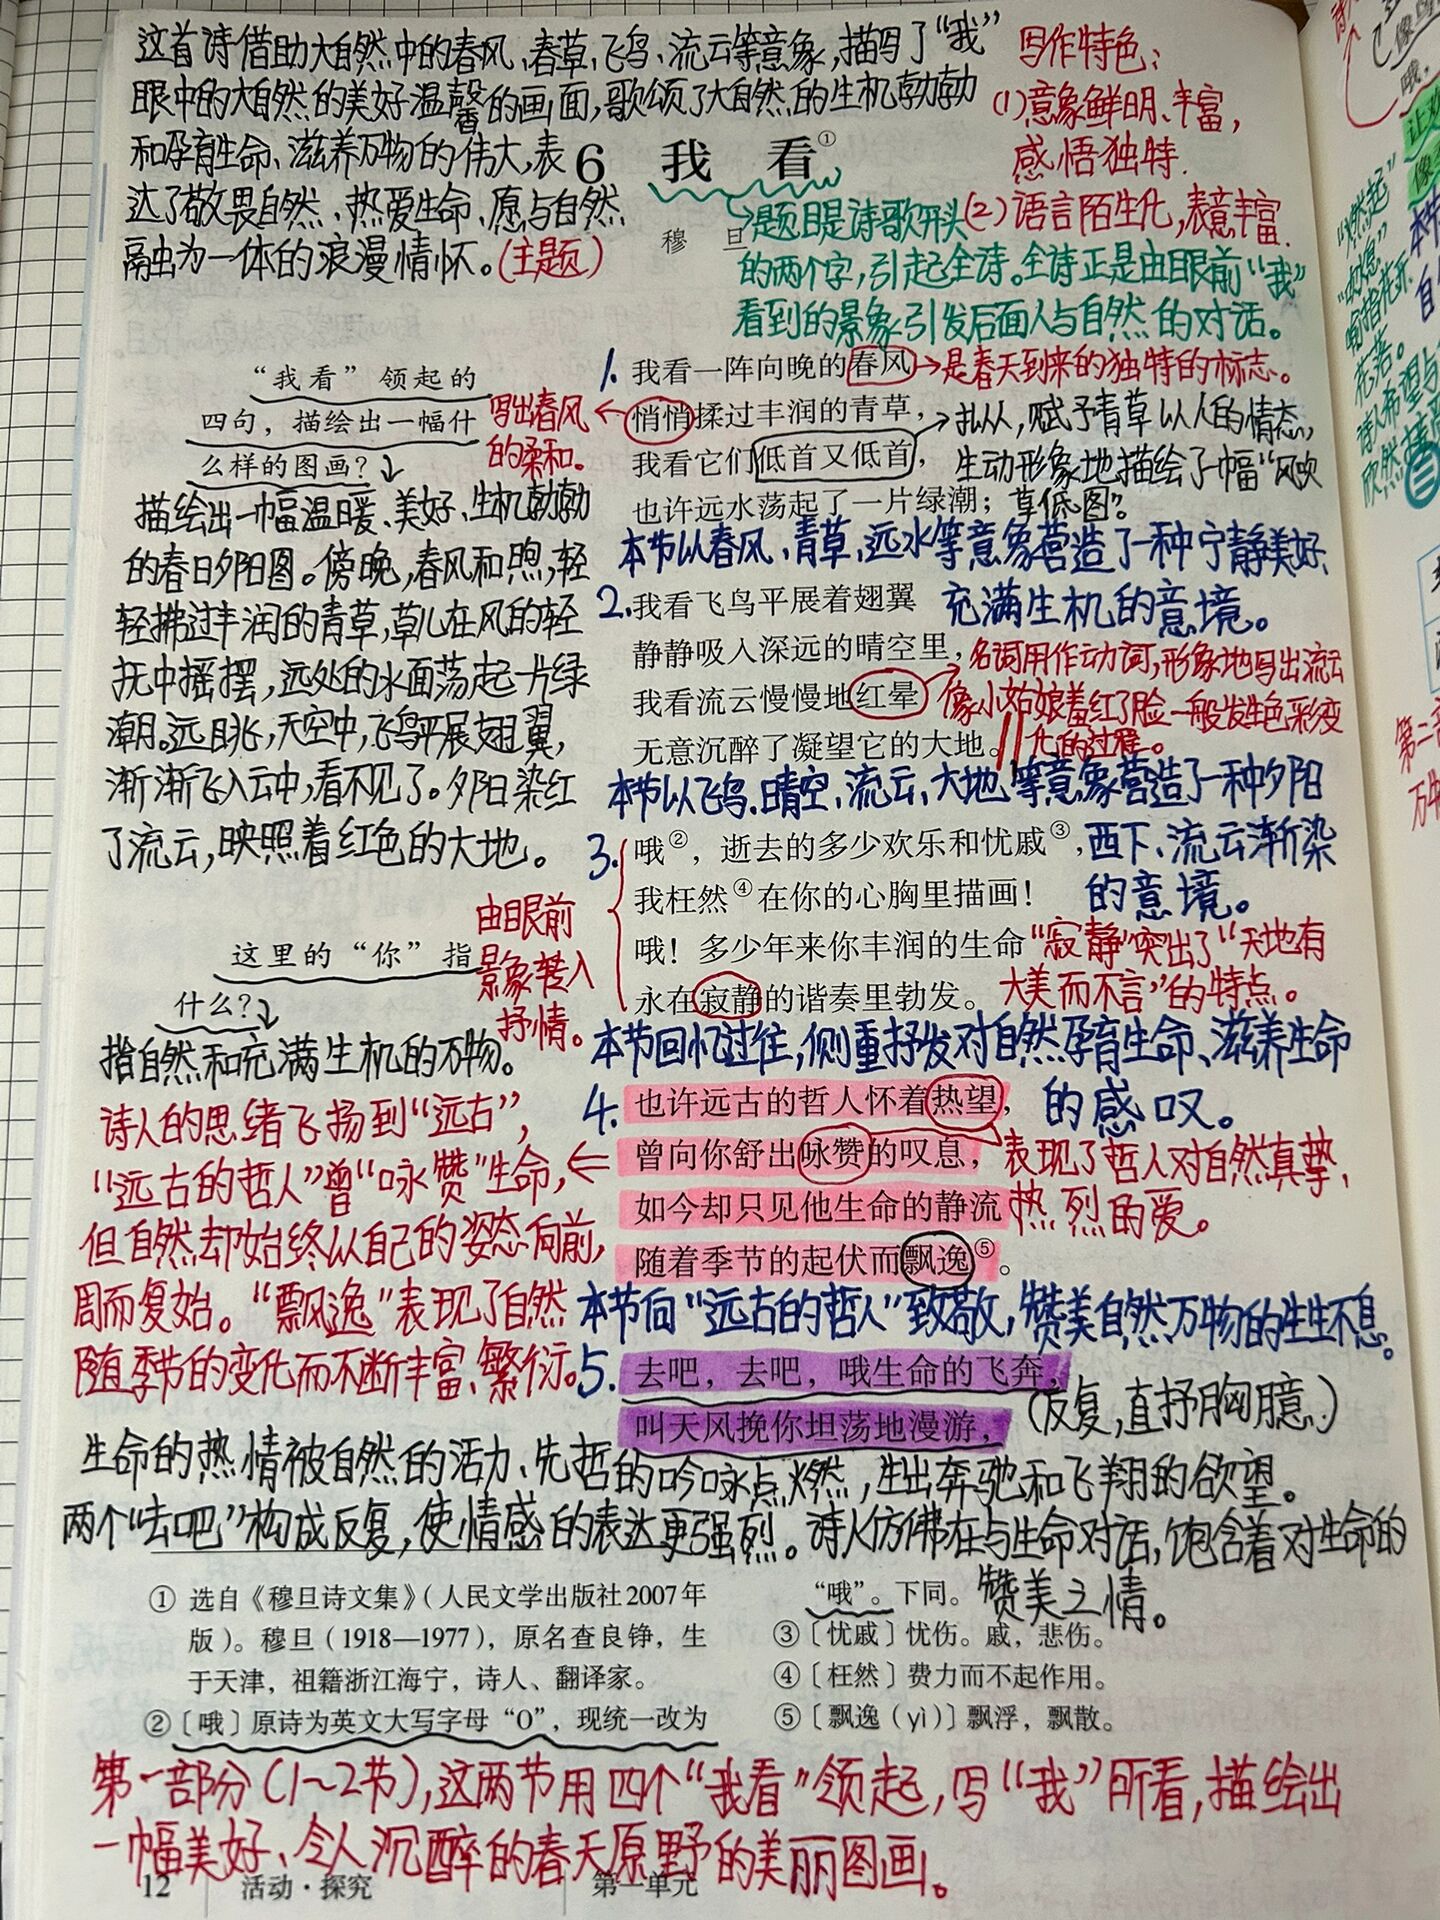 这首诗借助大自然中的春风、春草、飞鸟、流云等意象,描写了“我”
眼中的大自然的美好温馨的画面,歌颂了大自然的生机勃勃
和孕育生命、滋养万物的伟大,表
达了敬畏自然、热爱生命、愿与自然
融为一体的浪漫情怀。(主题)
写作特色:
(1)意象鲜明、丰富,
感悟独特.
(2)语言陌生化,表意丰富.
6 我看①
穆旦
题目是诗歌开头
的两个字,引起全诗。全诗正是由眼前“我”
看到的景象引发后面人与自然的对话。
“我看”领起的
四句,描绘出一幅什
么样的图画?
描绘出一幅温暖、美好、生机勃勃
的春日夕阳图。傍晚,春风和煦,轻
轻拂过丰润的青草,草儿在风的轻
抚中摇摆,远处的水面荡起一片绿
潮。远眺,天空中,飞鸟平展翅翼,
渐渐飞入云中,看不见了。夕阳染红
了流云,映照着红色的大地。
1.我看一阵向晚的春风
是春天到来的独特的标志。
写出春风
的柔和。
悄悄揉过丰润的青草,
拟人,赋予青草以人的情态,
我看它们低首又低首,
生动形象地描绘了一幅“风吹
也许远水荡起了一片绿潮;
草低图”。
本节以春风、青草、远水等意象营造了一种宁静美好、
充满生机的意境。
2.我看飞鸟平展着翅翼
静静吸入深远的晴空里,
我看流云慢慢地红晕
无意沉醉了凝望它的大地。
名词用作动词,形象地写出流云
像小姑娘羞红了脸一般发生色彩变
化的过程。
本节以飞鸟、晴空、流云、大地等意象营造了一种夕阳
西下、流云渐染
的意境。
3.哦②,逝去的多少欢乐和忧戚③,
我枉然④在你的心胸里描画!
哦!多少年来你丰润的生命
永在寂静的谐奏里勃发。
由眼前
景象转入
抒情。
“寂静”突出了“天地有
大美而不言”的特点。
这里的“你”指
什么?
指自然和充满生机的万物。
本节回忆过往,侧重抒发对自然孕育生命、滋养生命
的感叹。
4.也许远古的哲人怀着热望,
曾向你舒出咏赞的叹息,
如今却只见他生命的静流
随着季节的起伏而飘逸⑤。
表现了哲人对自然真挚、
热烈的爱。
诗人的思绪飞扬到“远古”,
“远古的哲人”曾“咏赞”生命,
但自然却始终以自己的姿态向前,
周而复始。“飘逸”表现了自然
随季节的变化而不断丰富、繁衍。
本节向“远古的哲人”致敬,赞美自然万物的生生不息。
5.去吧,去吧,哦生命的飞奔,
叫天风挽你坦荡地漫游,
(反复,直抒胸臆.)
生命的热情被自然的活力、先哲的吟咏点燃,生出奔驰和飞翔的欲望。
两个“去吧”构成反复,使情感的表达更强烈。诗人仿佛在与生命对话,饱含着对生命的
赞美之情。
① 选自《穆旦诗文集》(人民文学出版社2007年
版)。穆旦(1918—1977),原名查良铮,生
于天津,祖籍浙江海宁,诗人、翻译家。
②〔哦〕原诗为英文大写字母“O”,现统一改为
“哦”。下同。
③〔忧戚〕忧伤。戚,悲伤。
④〔枉然〕费力而不起作用。
⑤〔飘逸(yì)〕飘浮,飘散。
第一部分(1~2节),这两节用四个“我看”领起,写“我”所看,描绘出
一幅美好、令人沉醉的春天原野的美丽图画。
12 活动·探究 第一单元
“燃起”
花落。
诗人希望与